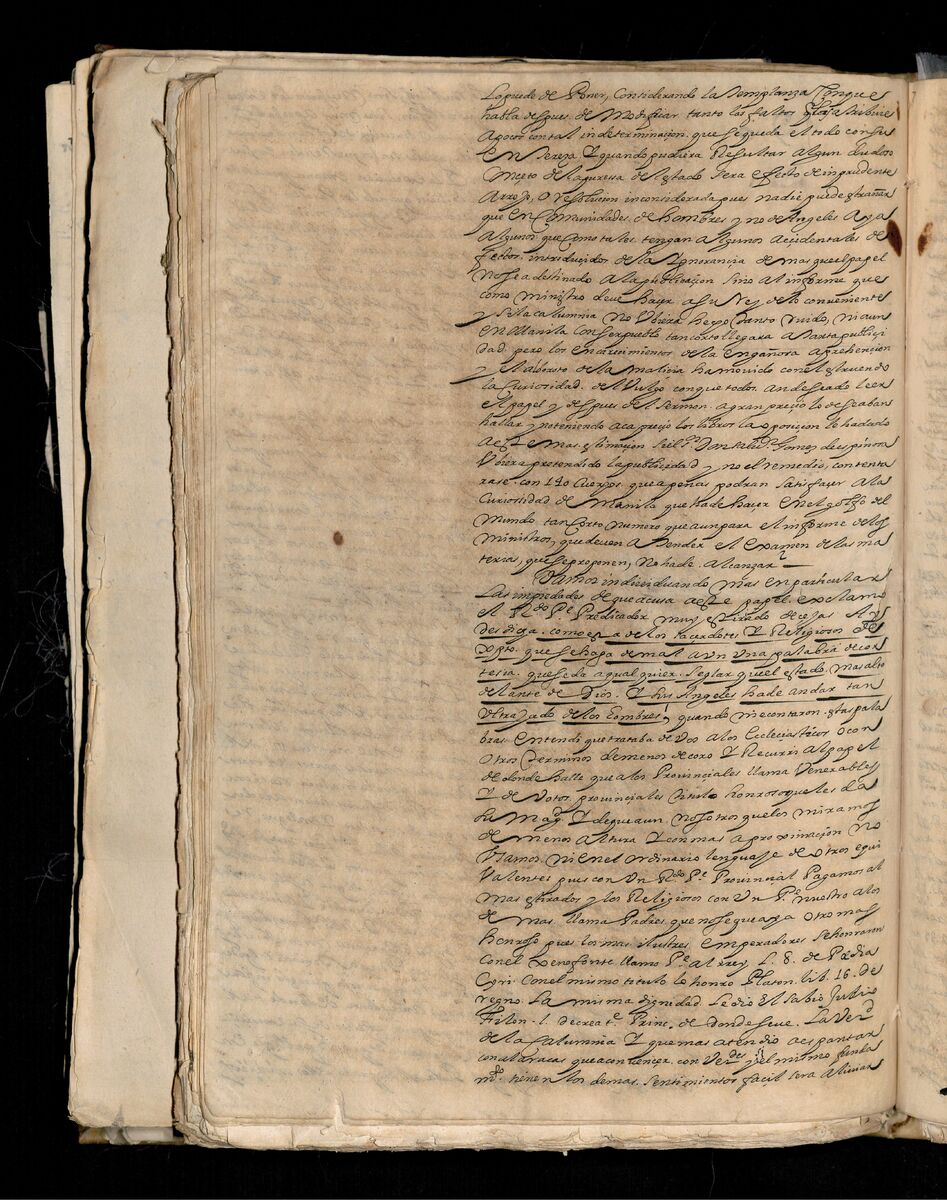 Lo puedo de Poner, Considerando la templanza Conque
habla despues de Modificar tanto las faltas q̃ las atribuie
Apocos con tal indeterminaçion, que se queda el todo con su
Entereza, Y quando pudiera Resultar algun dudoso
de la pureza del estado sera efecto de inprudente
Arrojo, O resolucion inconsiderada pues nadie puede estrañar
que en Comunidades de hombres y no de Angeles Aya
Algunos que Como tales tengan Algunos accidentales de
fectos introducidos de la Ignorancia demas que el papel
No se a destinado a la publicaçion sino al informe que
como ministro deve haçer a su Rey de lo conveniente
y si la calumnia No Ubiera hecho tanto ruido, ni aun
en Manila con ser pueblo tan corto llegara a tanta publiçi
dad, pero los encareçimientos de la engañosa aprehencion
y el alboroto de la maliçia ha movido con el estruendo
la curiosidad del Vulgo con que todos an deseado leer
el papel y despues del sermon a gran preçio lo deseaban
hallar y no teniendo aca preçio los libros la oposiçion le ha dado
a este mas estimaçion si el Don Salvador Gomez de espinosa
Ubiera pretendido la publiçidad y no el remedio, contenta
rase con 140 Cuerpos que apenas podran satisfaçer a la
Curiosidad de Manila que ha de haçer en el golfo del
Mundo tan Corto Numero que aun para el informe de los
Ministros, que deven atender el examen de las ma
terias, que se proponen, No ha de alcanzar?
Vamos individuando mas en particular
Las inpiedades de que acusa a este papel. exclamo
el Rdo Pe Predicador muy estirado de cejas Ay
desdicha como esta de los sacerdotes Y Religiosos de
Xpto. que se haga de mal aun Una palabra de cor
tesia. que se da a qualquier seglar que el estado mas alto
delante de Dios, Y sus Angeles ha de andar tan
Ultrajado de los hombres, quando me contaron estas pala
bras entendi que trataba de vos a los Ecclesiasticos o con
Otros terminos de menos decoro Y Recurri al papel
de donde halle que a los Provinciales llama Venerables
Y Devotos provinciales titulo honroso que les da
su Magd. Y de que aun Nosotros que los miramos
de menos altura Y con mas aproximaçion No
Usamos ni en el ordinario lenguaje de otros equi
Valentes pues con Un Rdo Pe Provincial Pagamos al
mas estirado y los Religiosos con Un Pe nuestro a los
de mas llama Padres, que no se que aya otro mas
honroso pues los mas ilustres emperadores se honraron
Con el Xenofonte llamo Pe al rrey, L. 8. de Pædia
Cyri Con el mismo titulo lo honro Platon. lib. 16. de
regno. La misma dignidad Le dio El Sabio Judio
Filon. l. de creat. Princ. de donde se ve. La Verd
de la Calumnia Y que mas atendio a espantar
con alaracas que a convençer con Verdes y el mismo funda
mto. tienen los demas sentimientos facil sera aliviar